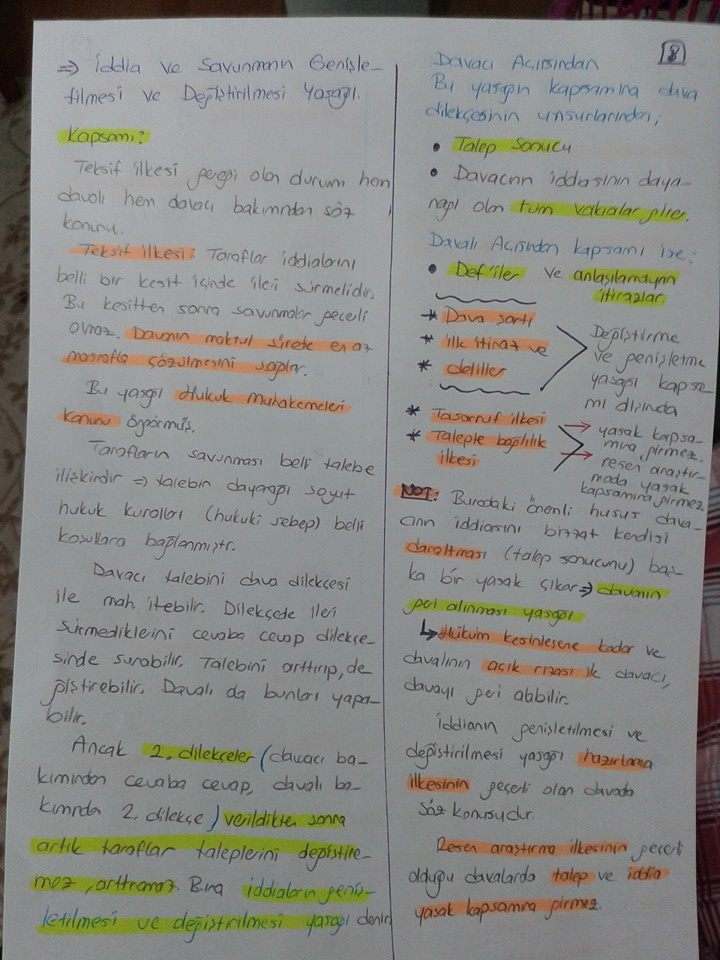 ⇒ İddia ve Savunmanın Genişle-
tilmesi ve Değiştirilmesi Yasağı.
Kapsamı?
Teksif ilkesi gereği olan durum hem
davalı hem davacı bakımından söz
konusu.
Teksif ilkesi: Taraflar iddialarını
belli bir kesit içinde ileri sürmelidir.
Bu kesitten sonra savunmalar geçerli
olmaz. Davanın makul sürede en az
masrafla çözülmesini sağlar.
Bu yasağı Hukuk Muhakemeleri
kanunu öğörmüş.
Tarafların savunması belli talebe
ilişkindir ⇒ talebin dayanağı soyut
hukuk kuralları (hukuki sebep) belli
koşullara bağlanmıştır.
Davacı talebini dava dilekçesi
ile mah. iletebilir. Dilekçede ileri
sürmediklerini cevaba cevap dilekçe-
sinde sunabilir. Talebini arttırıp, de
ğiştirebilir. Davalı da bunları yapa-
bilir.
Ancak 2. dilekçeler (davacı ba-
kımından cevaba cevap, davalı ba-
kımında 2. dilekçe) verildikten sonra
artık taraflar taleplerini değiştire-
mez, arttıramaz. Buna iddiaların geniş-
letilmesi ve değiştirilmesi yasağı denir
8
Davacı Açısından
Bu yasağın kapsamına dava
dilekçesinin unsurlarından;
• Talep Sonucu
• Davacının iddiasının daya-
nağı olan tüm vakıalar girer.
Davalı Açısından kapsamı ise:
• Def'iler ve anlaşılamayan
itirazlar
* Dava şartı
* ilk itiraz ve
* deliller
Değiştirme
ve genişletme
yasağı kapsa
mı dışında
* Tasarruf ilkesi
* Taleple bağlılık
ilkesi
yasak kapsa-
mına girmez.
resen araştır-
mada yasak
kapsamına girmez
NOT: Buradaki önemli husus dava-
cının iddiasını bizzat kendisi
daraltması (talep sonucunu) baş-
ka bir yasak çıkar ⇒ davanın
geri alınması yasağı
↳ Hüküm kesinleşene kadar ve
davalının açık rızası ile davacı,
davayı geri alabilir.
iddianın genişletilmesi ve
değiştirilmesi yasağı hazırlama
ilkesinin geçerli olan davada
söz konusudur.
Resen araştırma ilkesinin geçerli
olduğu davalarda talep ve iddia
yasak kapsamına girmez.